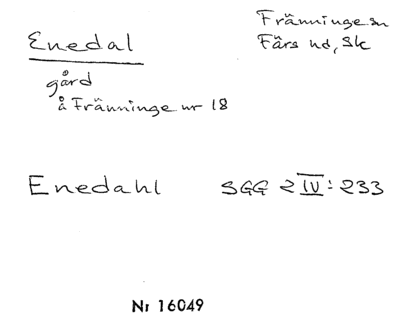 Enedal
Fränninge sn
Färs hd, Sk
gård
å Fränninge nr 18
Enedahl SGG 2 IV: 233
Nr 16049